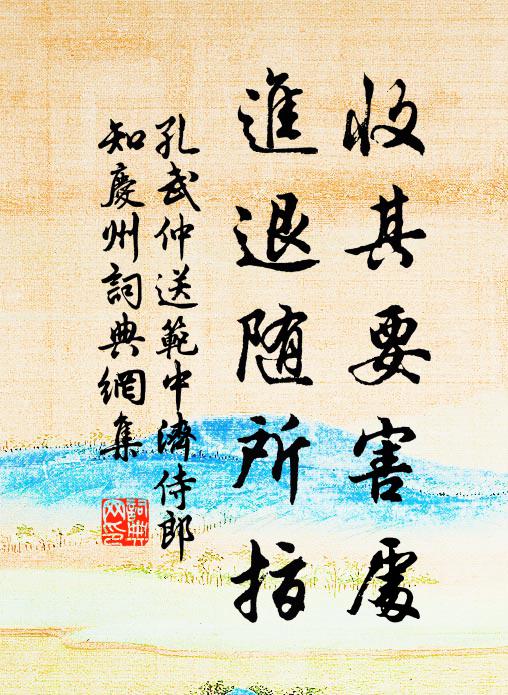 收其要害處
進退随所指
孔武仲送範中濟侍郎
知慶州詞典網集